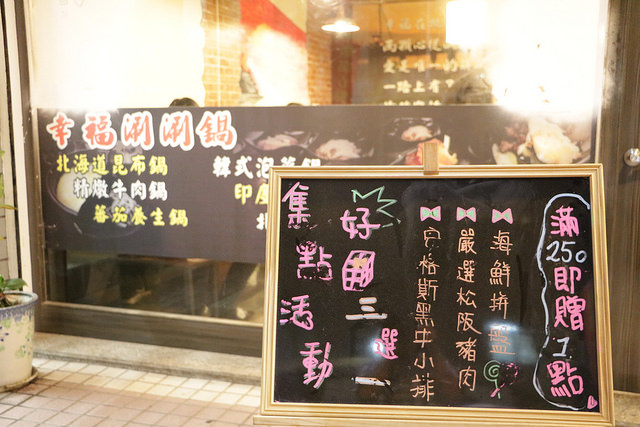 幸福涮涮鍋
北海道昆布鍋
韓式泡菜鍋
精燉牛肉鍋
印
蕃茄養生鍋
兩顆心
愛是唯一的
一路上有
滿250即贈1點
海鮮拼盤
嚴選松阪豬肉
安格斯黑牛小排
好 三選一
集點活動